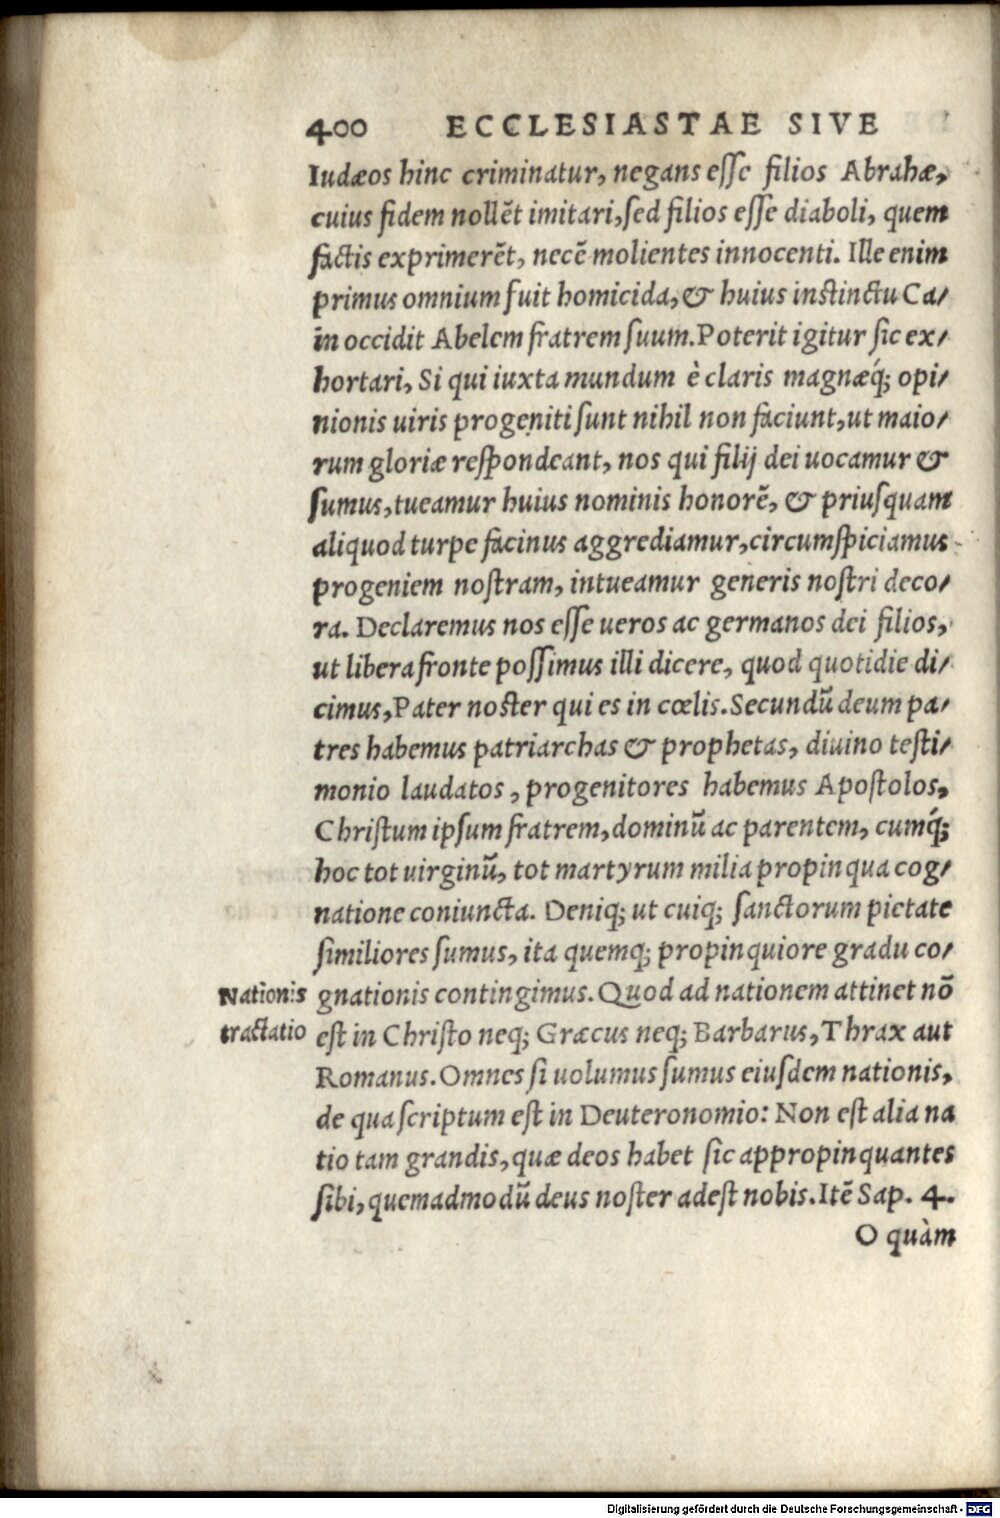 400 ECCLESIASTAE SIVE
Iudæos hinc criminatur, negans esse filios Abrahæ,
cuius fidem nollēt imitari, sed filios esse diaboli, quem
factis exprimerēt, necē molientes innocenti. Ille enim
primus omnium fuit homicida, & huius instinctu Ca/
in occidit Abelem fratrem suum. Poterit igitur sic ex/
hortari, Si qui iuxta mundum è claris magnæq́; opi/
nionis uiris progeniti sunt nihil non faciunt, ut maio/
rum gloriæ respondeant, nos qui filij dei uocamur &
sumus, tueamur huius nominis honorē, & priusquam
aliquod turpe facinus aggrediamur, circumspiciamus
progeniem nostram, intueamur generis nostri deco/
ra. Declaremus nos esse ueros ac germanos dei filios,
ut libera fronte possimus illi dicere, quod quotidie di/
cimus, Pater noster qui es in cœlis. Secundū deum pa/
tres habemus patriarchas & prophetas, diuino testi/
monio laudatos, progenitores habemus Apostolos,
Christum ipsum fratrem, dominū ac parentem, cumq́;
hoc tot uirginū, tot martyrum milia propinqua cog/
natione coniuncta. Deniq; ut cuiq; sanctorum pietate
similiores sumus, ita quemq; propinquiore gradu co/
Nationis gnationis contingimus. Quod ad nationem attinet nō
tractatio est in Christo neq; Græcus neq; Barbarus, Thrax aut
Romanus. Omnes si uolumus sumus eiusdem nationis,
de qua scriptum est in Deuteronomio: Non est alia na
tio tam grandis, quæ deos habet sic appropinquantes
sibi, quemadmodū deus noster adest nobis. Itē Sap. 4.
O quàm
Digitalisierung gefördert durch die Deutsche Forschungsgemeinschaft - DFG